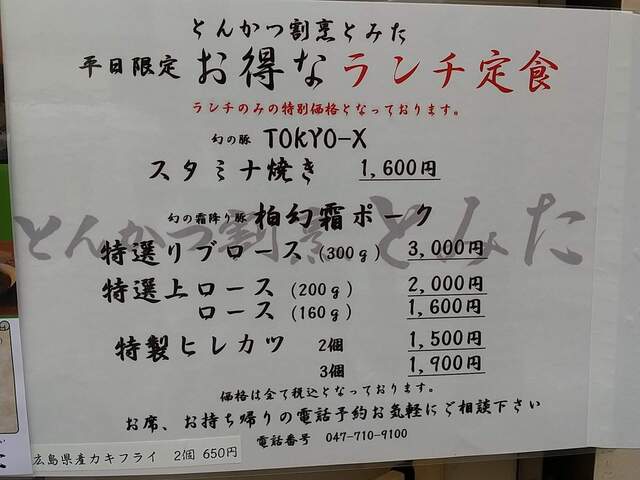 とんかつ割烹とみた
平日限定 お得なランチ定食
ランチのみの特別価格となっております。
幻の豚 TOKYO-X
スタミナ焼き 1,600円
とんかつ割烹とみた
幻の霜降り豚 柏幻霜ポーク
特選リブロース (300g) 3,000円
特選上ロース (200g) 2,000円
ロース (160g) 1,600円
特製ヒレカツ 2個 1,500円
3個 1,900円
価格は全て税込となっております。
お席、お持ち帰りの電話予約お気軽にご相談下さい
電話番号 047-710-9100
広島県産カキフライ 2個 650円